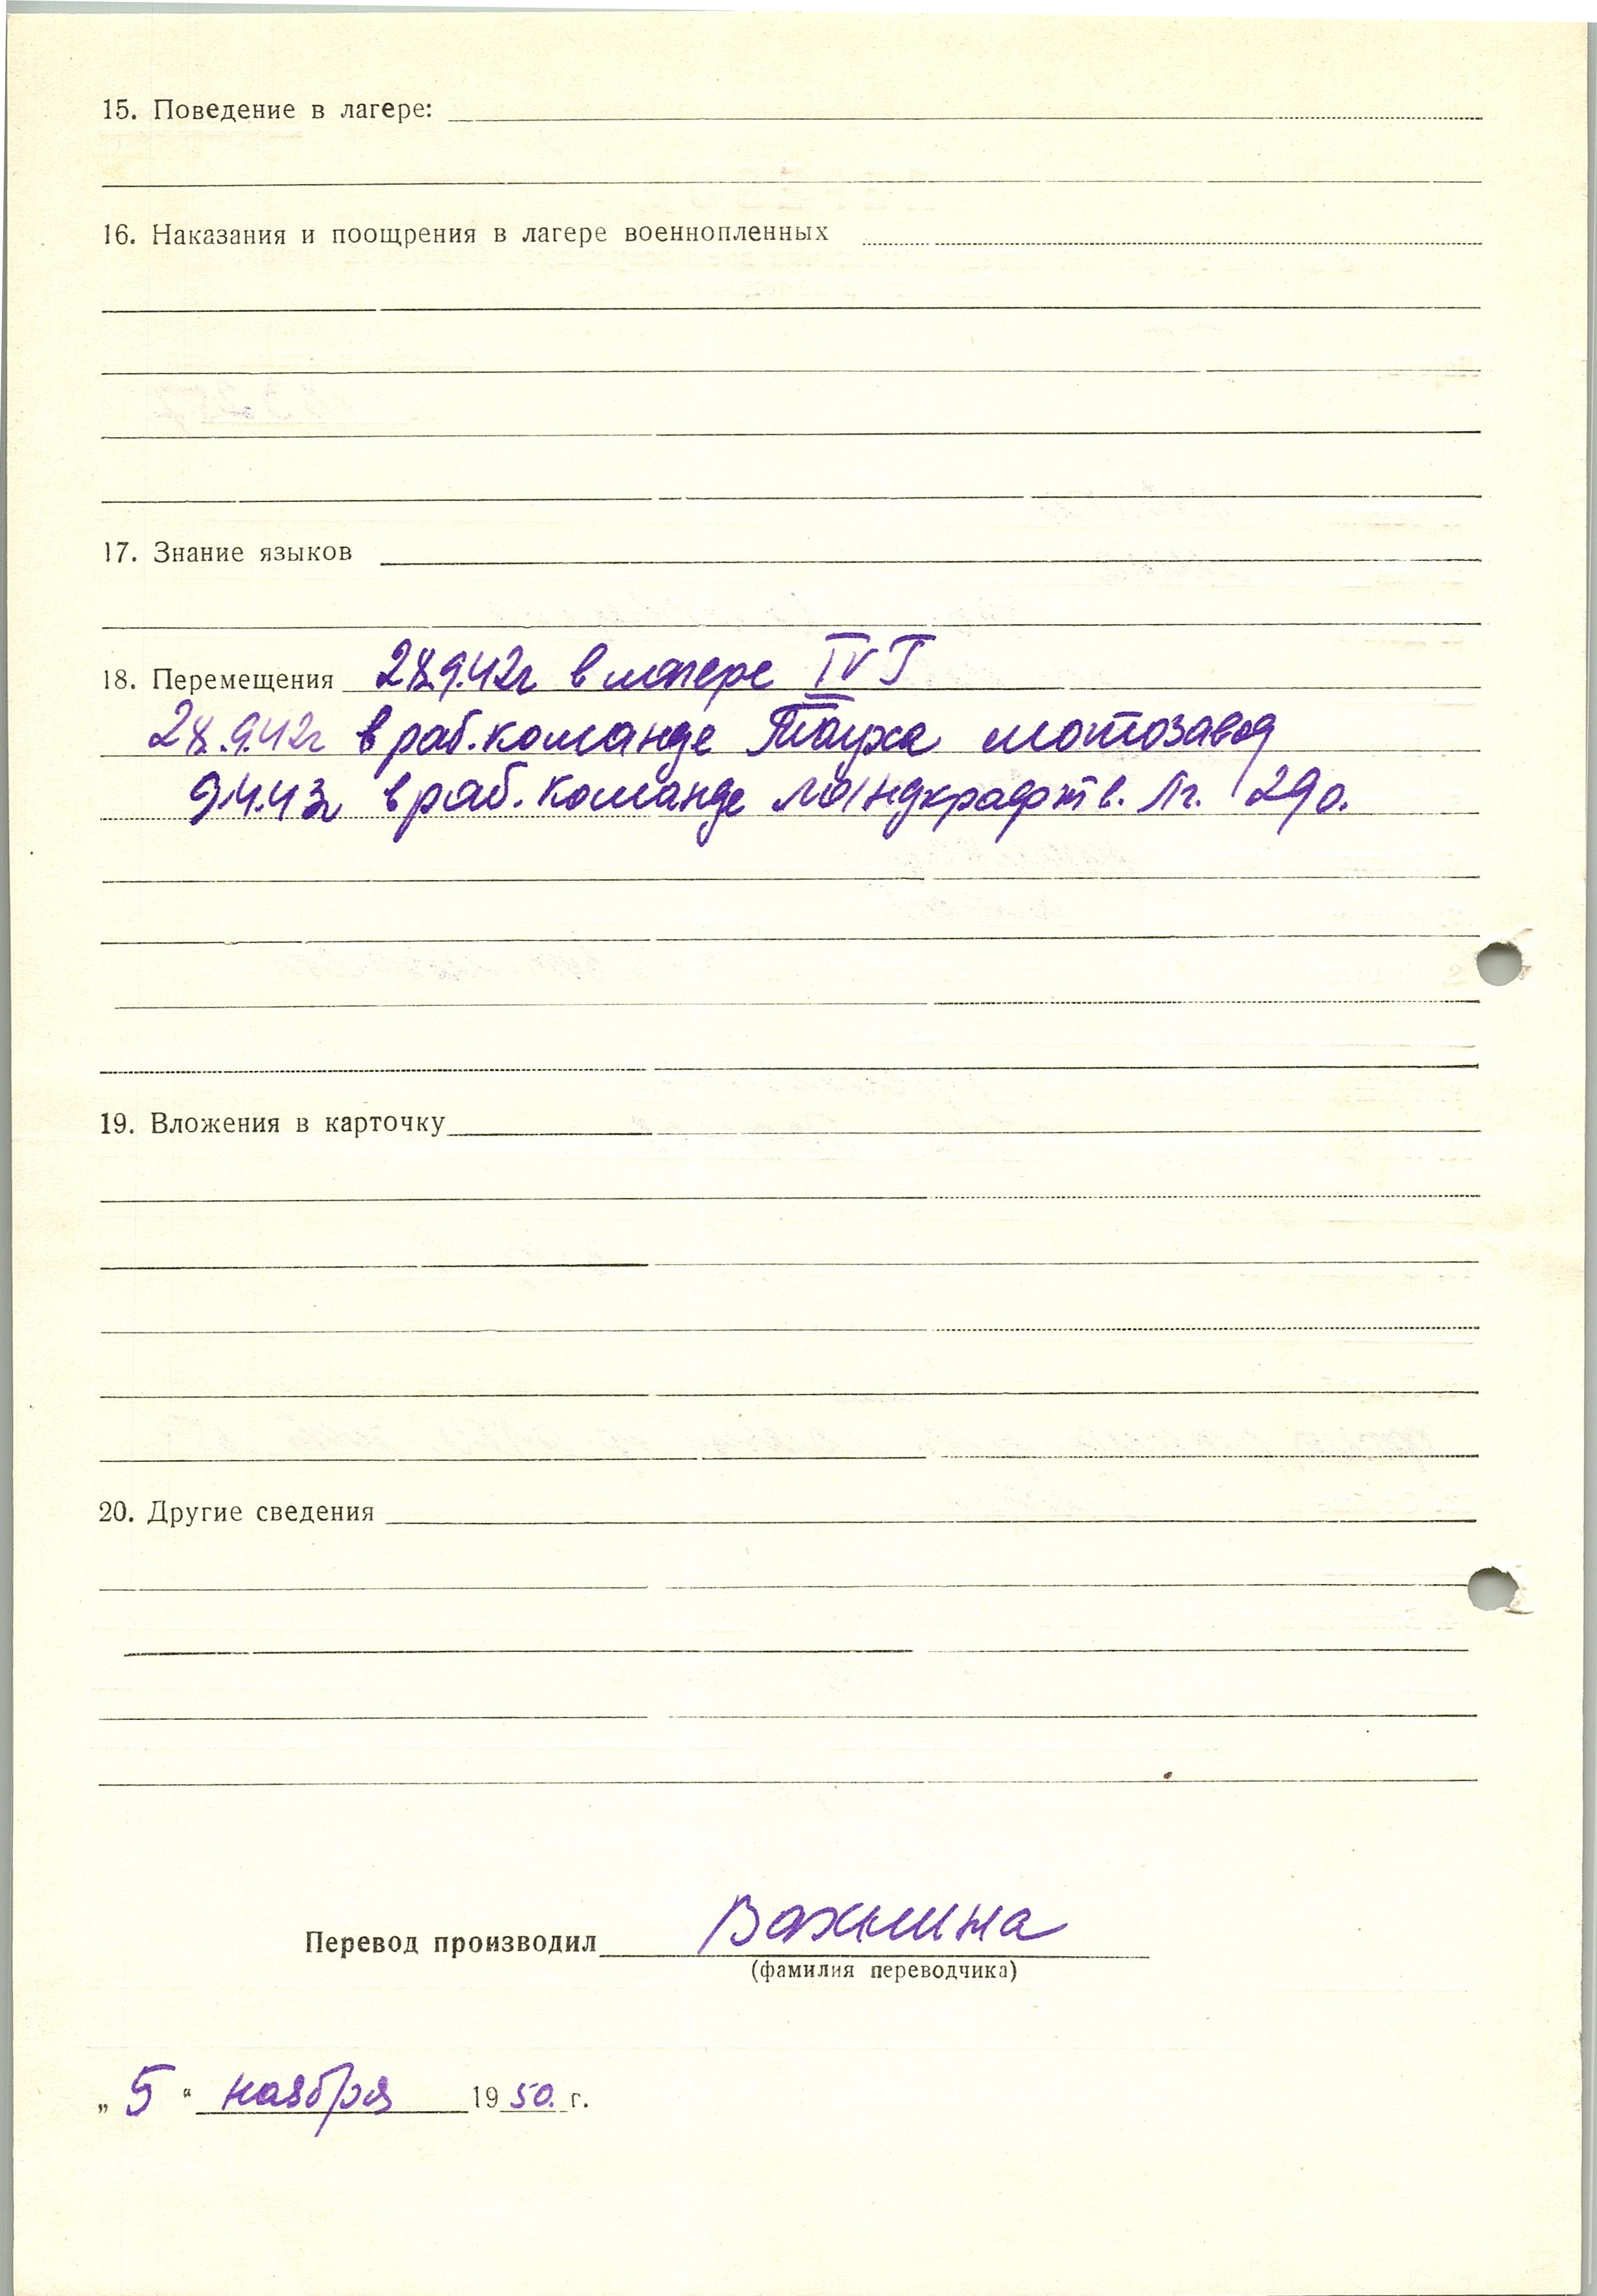 15. Поведение в лагере:
16. Наказания и поощрения в лагере военнопленных
17. Знание языков
18. Перемещения 28.9.42г в лагере IV
28.9.42г в раб. команде Тауха мотозавод
9.4.43г в раб. команде Лг. 290.
19. Вложения в карточку
20. Другие сведения
Перевод производил Вахнина
(фамилия переводчика)
„ 5 “ ноября 1950. г.